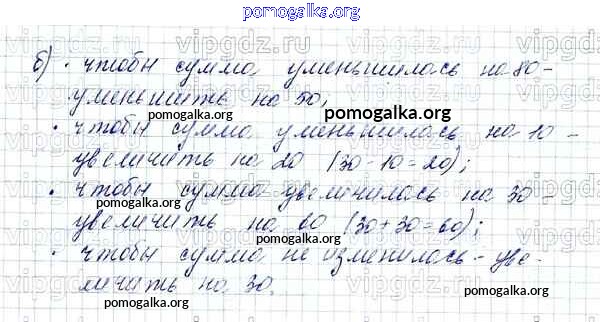 pomogalka.org
б) · чтобы сумма уменьшилась на 80 -
уменьшить на 50;
pomogalka.org
· чтобы сумма уменьшилась на 10 -
увеличить на 20 (30 - 10 = 20);
pomogalka.org
· чтобы сумма увеличилась на 30 -
увеличить на 60 (30 + 30 = 60);
pomogalka.org
· чтобы сумма не изменилась - уве-
личить на 30.
pomogalka.org
pomogalka.org